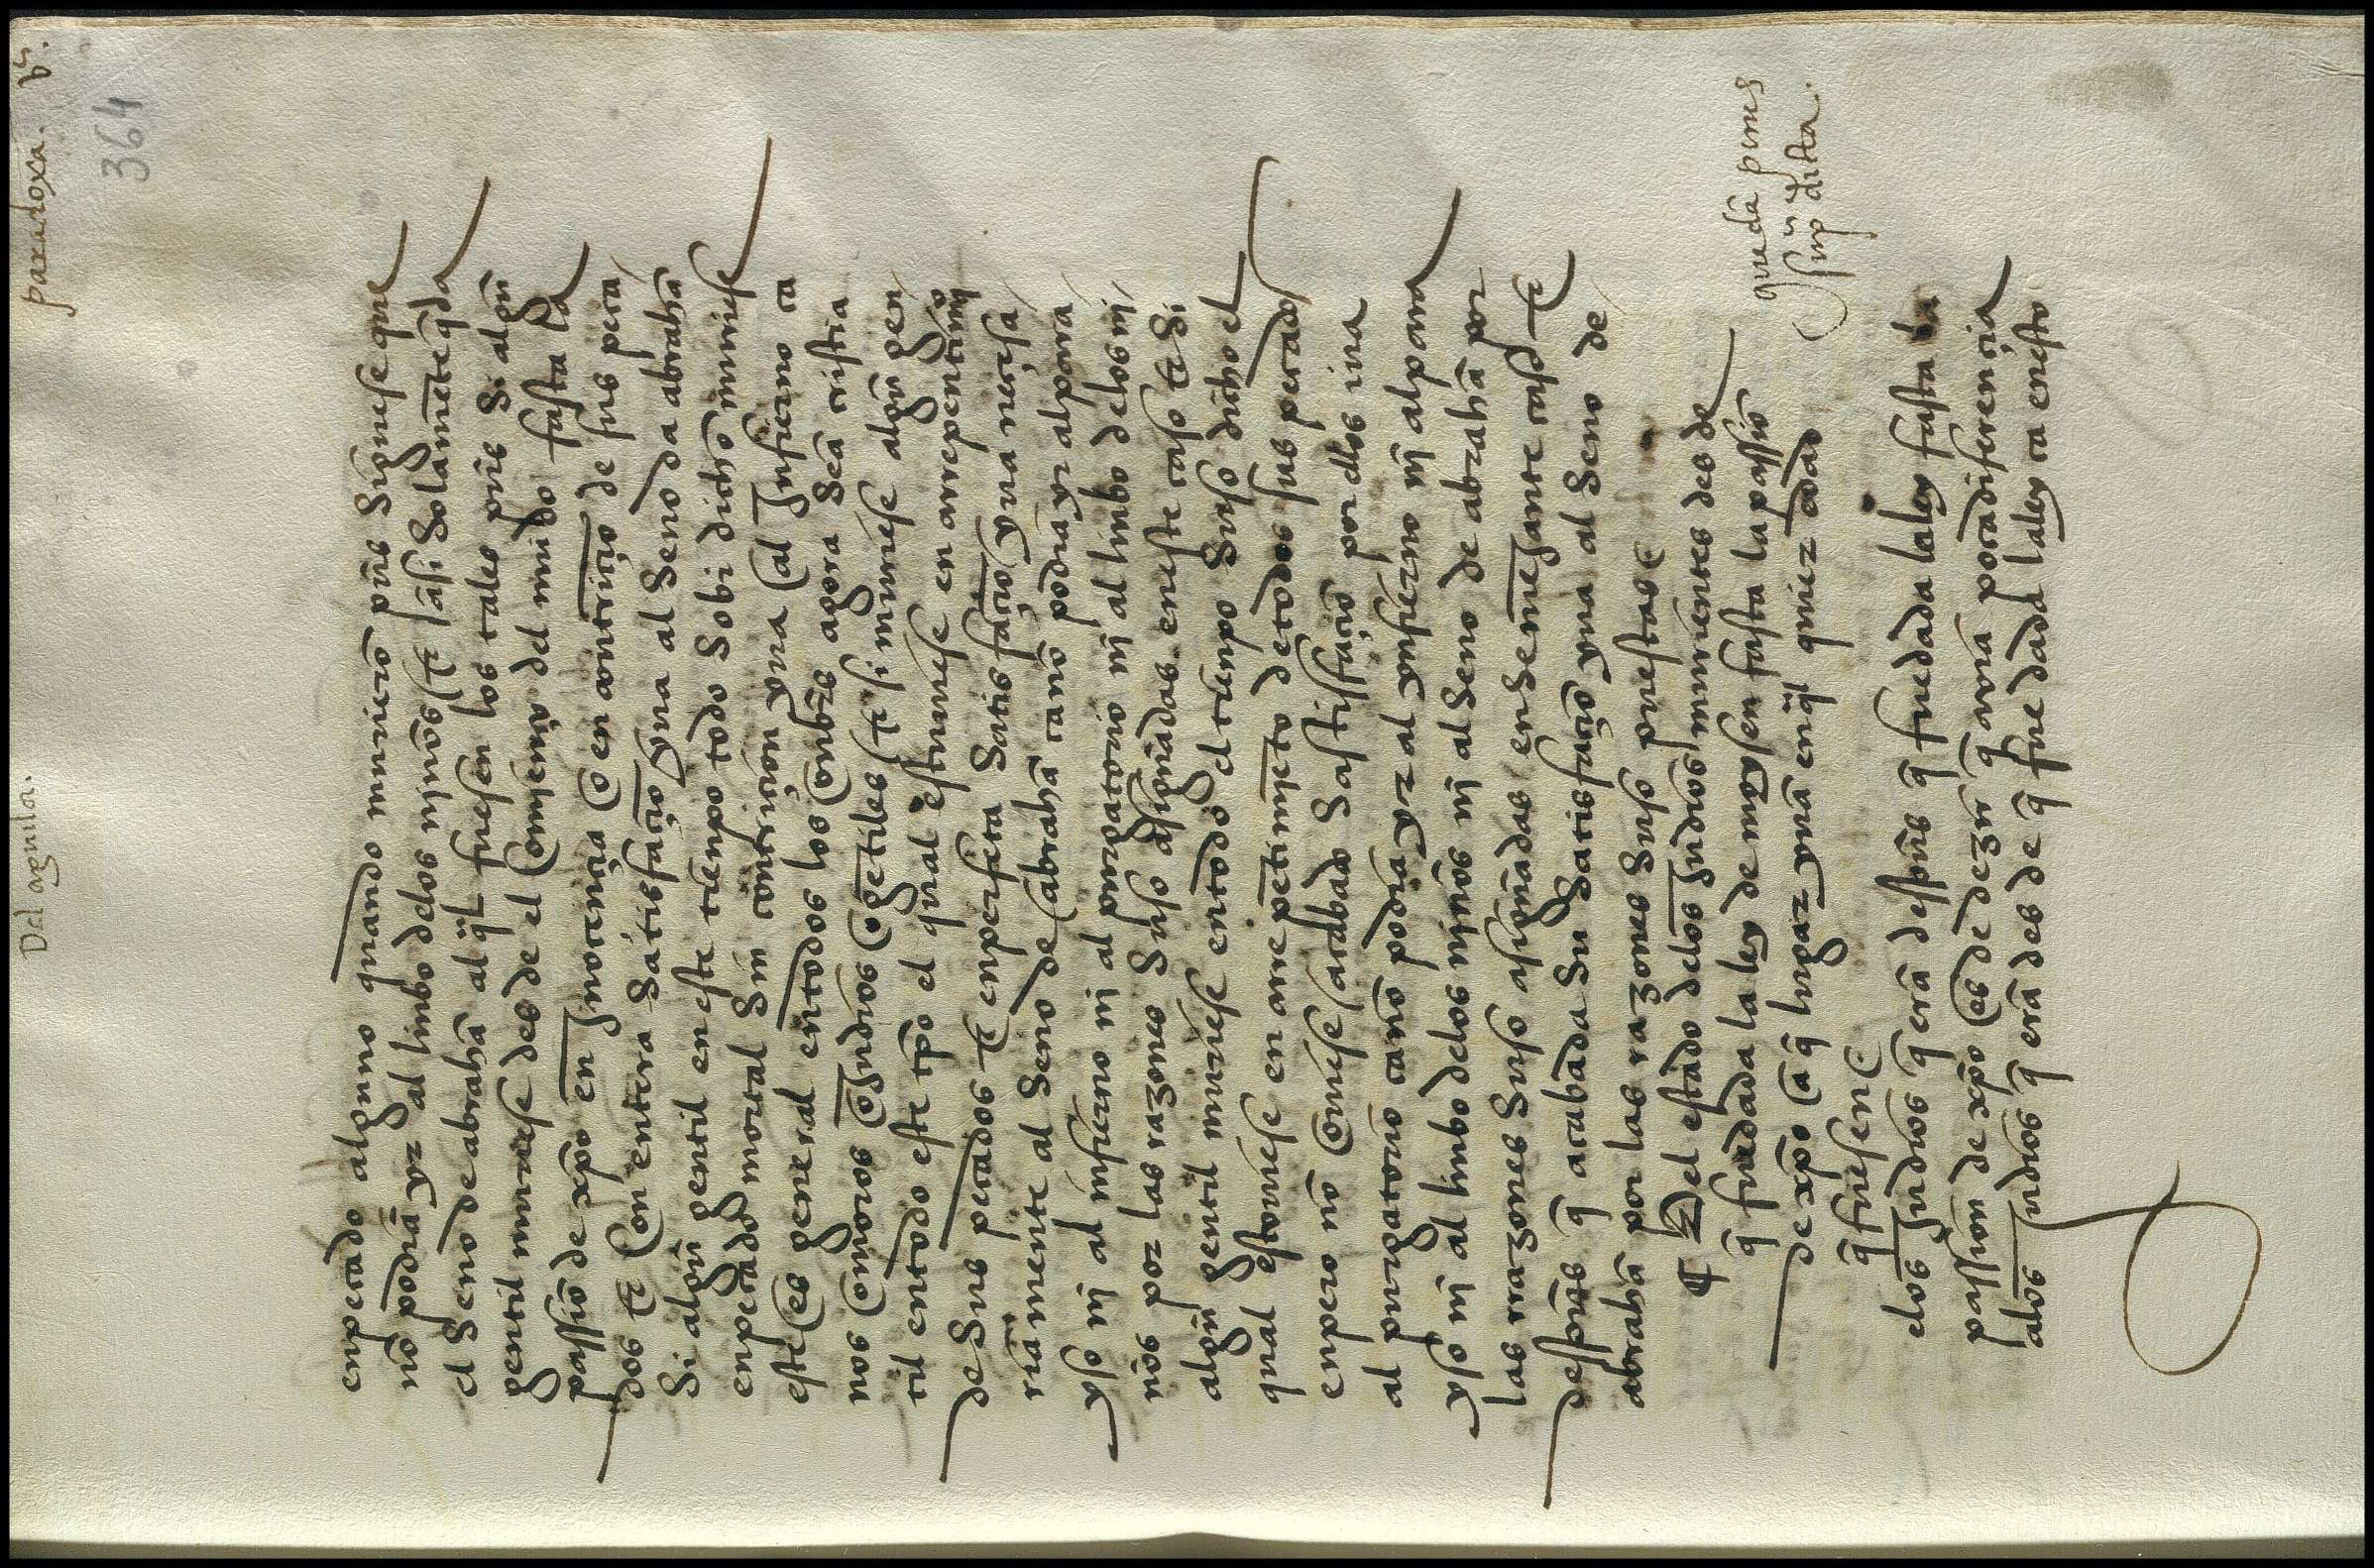 Del aguila.
paradoxa. v.
364
enpecado alguno quando murierõ pũes Supiese que
nõ podriã yr al linbo delos njños ⁊ asi Solamẽte q̃da
el Seno de abrahã al q̃l fuesen los tales pũes Si algũ
gentil muriese desde el Comjenço del mũdo fasta la
passiõ de xp̃o en Jnoçençia o en contriçiõ de sus peca
dos ⁊ Con entera Satisfaçiõ yria al Seno da abrahã
Si algũ gentil en este tienpo todo Sobi dicho muriese
enpecado mortal Sin contriçion yria al Jnfierno ca
este es general entodos los onbr̃s agora Seã cristia
nos o moros o Judios o gẽtiles ⁊ si muriese algũ gen
til entodo este tp̃o el qual estuuiese en arrepentimjº
de Sus pecados ⁊ enperfeta Satisfaçiõ yria neçesa
riamente al Seno de abrahã ca nõ podria yr al para
yso nj al infierno nj al purgatorio nj al linbo delos nj
ños por las razones Suso asignadas eneste caso ⁊ Si
algũ gentil muriese entodo el tienpo Suso dicho el
qual estouiese en arrepẽtimjẽto de todos sus pecados
enpero nõ ouiese acabado Sastisfaçiõ por ellos iria
al purgatorio ca nõ podria yr al ynfierno nj al para
yso nj al linbo delos njños nj al Seno de abrahã por
las rrazones Suso asignadas en Semejante caso ⁊
despũes q̃ acabada Su Satisfaçiõ yria al Seno de
abrahã por las razones Suso puestas
¶ Del estado delos Judios murientes des de
q̃ fue dada la ley de moysen fasta la passiõ
de xp̃o a q̃ lugar yriã en q̃l quier edad
q̃ fuesen
queda pues
sup dicta.
elos Judios q̃ erã despũes q̃ fue dada la ley fasta la
passion de xp̃o es de dezir q̃ auia poca diferençia
alos Judios q̃ erã des de q̃ fue dada la ley ca enesto